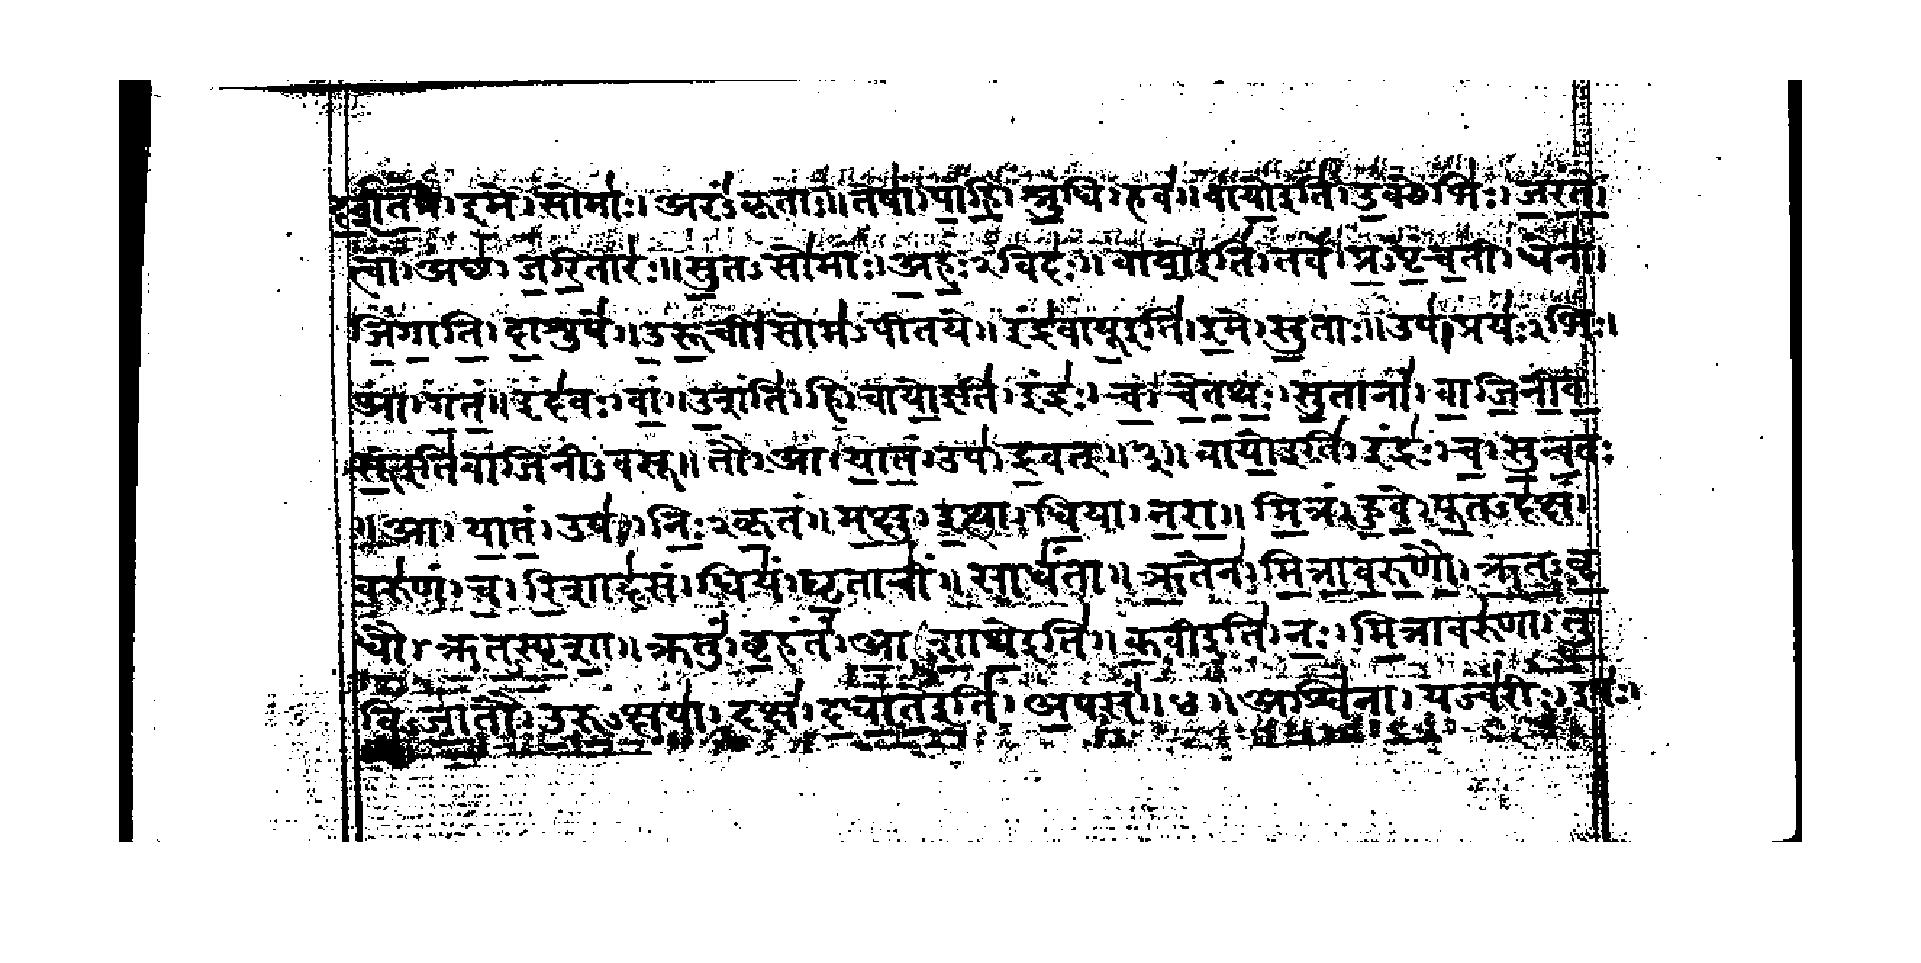 दर्शत। इमे। सोमाः। अरंऽकृताः॥ तेषां। पाहि। श्रुधि। हवं॥ वायोइति। उक्थेभिः। जरंते।
त्वां। अछ। जरितारः॥ सुतऽसोमाः। अहःऽविदः॥ वायोइति। तव। प्रऽपृंचती। धेना।
जिगाति। दाशुषे॥ उरूची। सोमऽपीतये॥ इंद्रवायूइति। इमे। सुताः॥ उप। प्रयःऽभिः।
आ। गतं॥ इंदवः। वां। उशंति। हि॥ वायोइति। इंद्रः। च। चेतथः। सुतानां। वाजिनीव
सूइतिवाजिनीऽवसू॥ तौ। आ। यातं। उप। द्रवत्॥ ३॥ वायोइति। इंद्रः। च। सुन्वतः
॥ आ। यातं। उप। निःऽकृतं॥ मक्षु। इत्था। धिया। नरा॥ मित्रं। हुवे। पूतऽदक्षं।
वरुणं। च। रिशादसं। धियं। घृताचीं। साधंता॥ ऋतेन। मित्रावरुणौ। ऋतऽवृ
धौ। ऋतस्पृशा॥ क्रतुं। बृहंतं। आशाथेइति॥ कवीइति। नः। मित्रावरुणा। तु
विऽजातौ। उरुऽक्षया। दक्षं। दधातेइति। अपसं॥ ४॥ अश्विना। यज्वरीः। इषः।